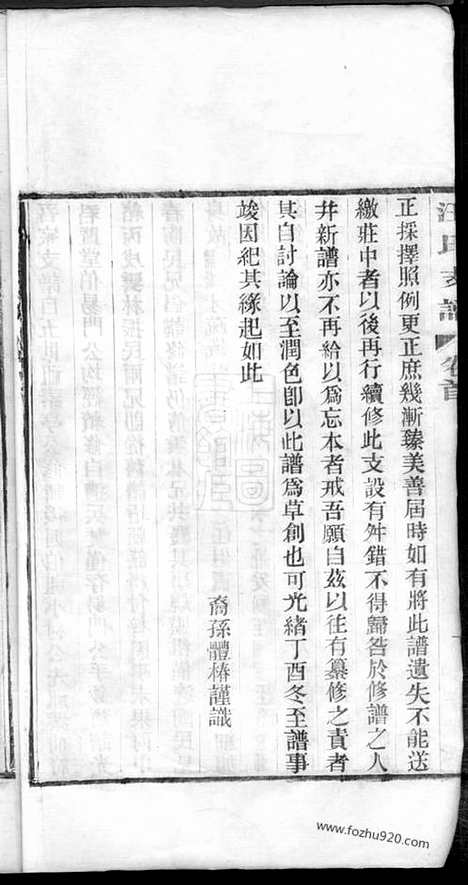 汪氏支譜 卷首
正採擇照例更正庶幾漸臻美善屆時如有將此譜遺失不能送
繳莊中者以後再行續修此支設有舛錯不得歸咎於修譜之人
幷新譜亦不再給以爲忘本者戒吾願自茲以往有纂修之責者
其自討論以至潤色卽以此譜爲草創也可光緒丁酉冬至譜事
竣因紀其緣起如此
裔孫體椿謹識
www.fozhu920.com